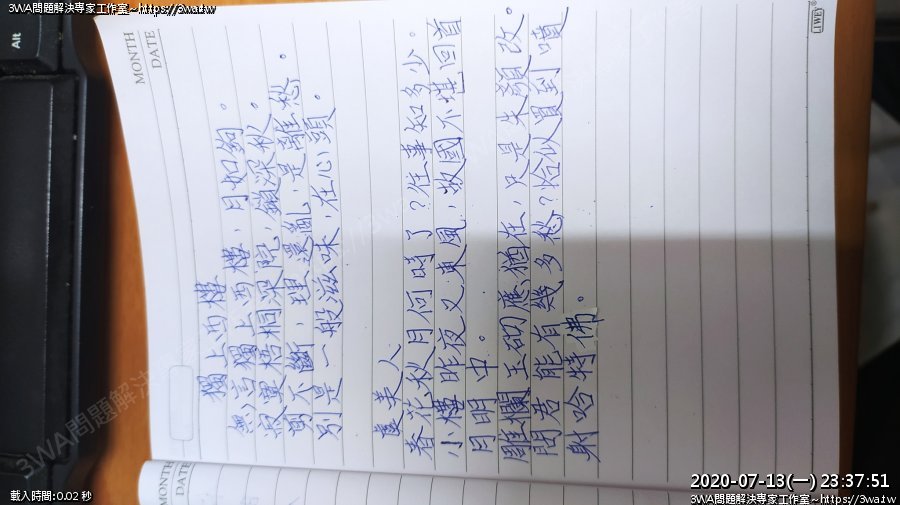 3WA問題解決專家工作室~https://3wa.tw
Alt
MONTH
DATE
獨上西樓
無言獨上西樓，月如鉤。
寂寞梧桐深院，鎖深秋。
剪不斷，理還亂，是離愁。
別是一般滋味，在心頭。
虞美人
春花秋月何時了？往事知多少。
小樓昨夜又東風，故國不堪回首
月明中。
雕欄玉砌應猶在，只是朱顏改。
問君能有幾多愁？恰似買到噴
射哈特佛。
MONTH
DATE
載入時間:0.02 秒
2020-07-13(一) 23:37:51
3WA問題解決專家工作室~https://3wa.tw